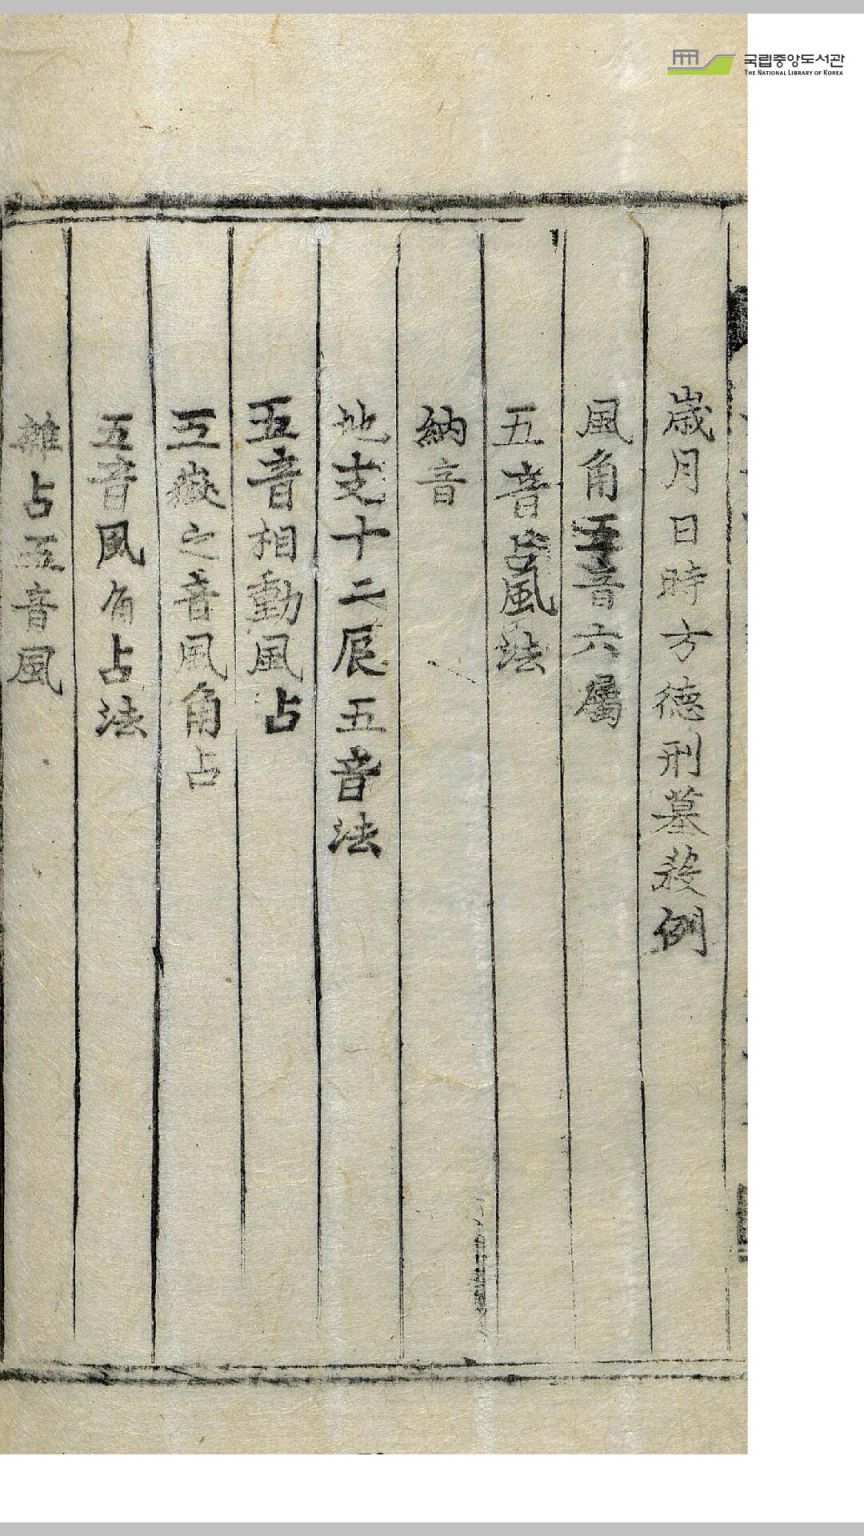 국립중앙도서관
THE NATIONAL LIBRARY OF KOREA
歳月日時方德刑墓殺例
風角五音六屬
五音占風法
納音
地支十二辰五音法
五音相動風占
五㱔之音風角占
五音風角占法
雜占五音風